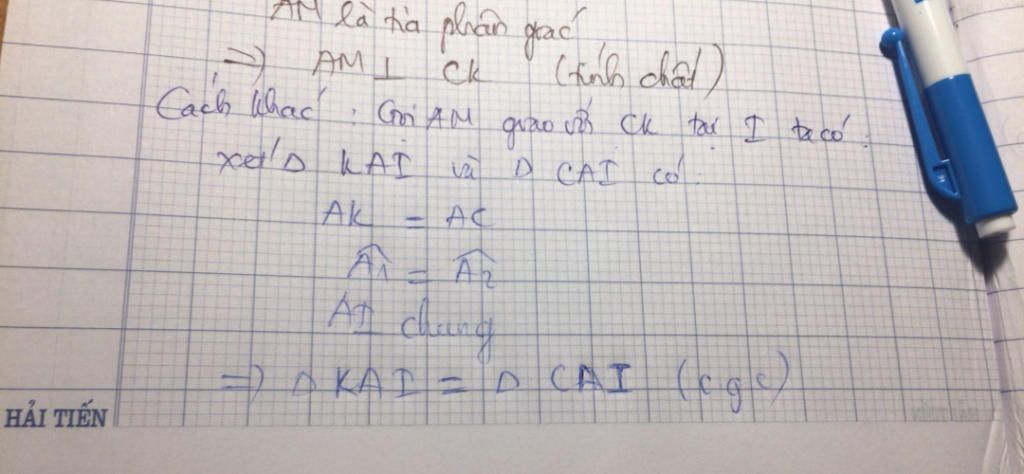 AM là tia phân giác
=> AM ⊥ CK (tính chất)
Cách khác : Gọi AM giao với CK tại I ta có :
xét Δ KAI và Δ CAI có :
AK = AC
Â1 = Â2
AI chung
=> Δ KAI = Δ CAI (c g c)
HẢI TIẾN